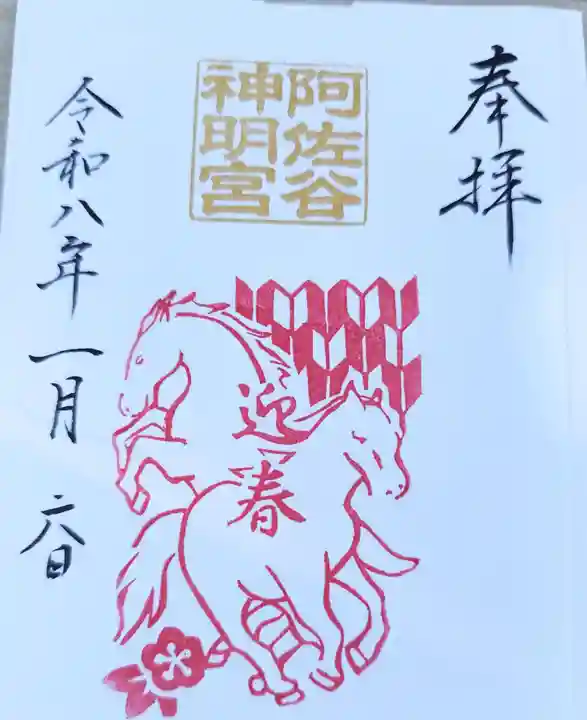 奉拝
阿佐谷
神明宮
迎春
令和八年一月六日